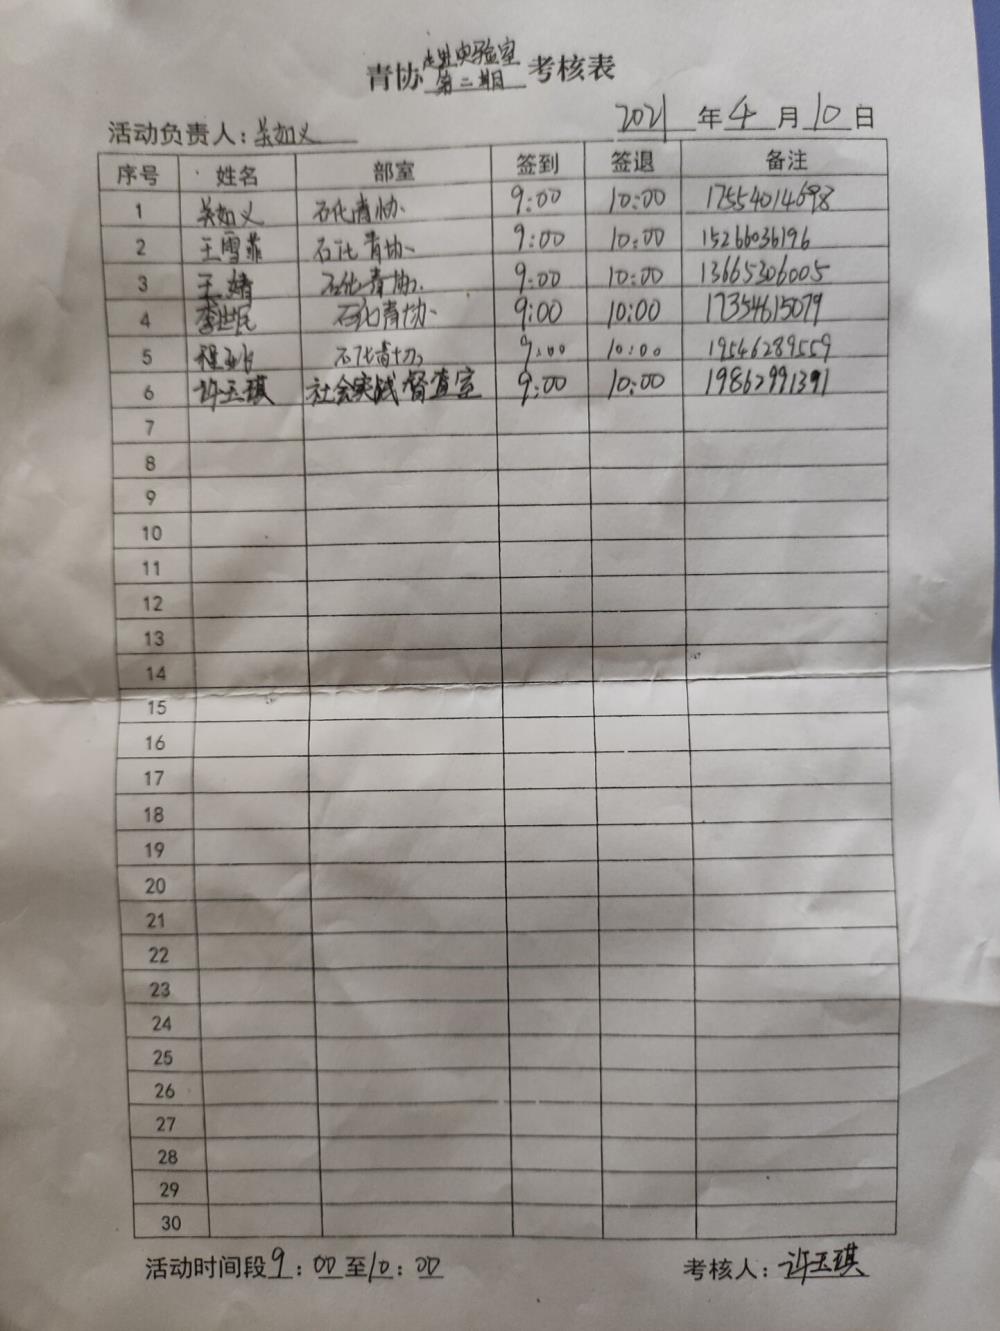 青协走进实验室第二期考核表
活动负责人：吴如义 2021年4月10日
序号 姓名 部室 签到 签退 备注
1 吴如义 石化青协 9:00 10:00 17554014698
2 王雪菲 石化青协 9:00 10:00 15266036196
3 王婧 石化青协 9:00 10:00 13665306005
4 李世民 石化青协 9:00 10:00 17354615079
5 程 石化青协 9:00 10:00 19546289559
6 许玉琪 社会实践督查室 9:00 10:00 19862991391
7
8
9
10
11
12
13
14
15
16
17
18
19
20
21
22
23
24
25
26
27
28
29
30
活动时间段9：00至10：00 考核人：许玉琪